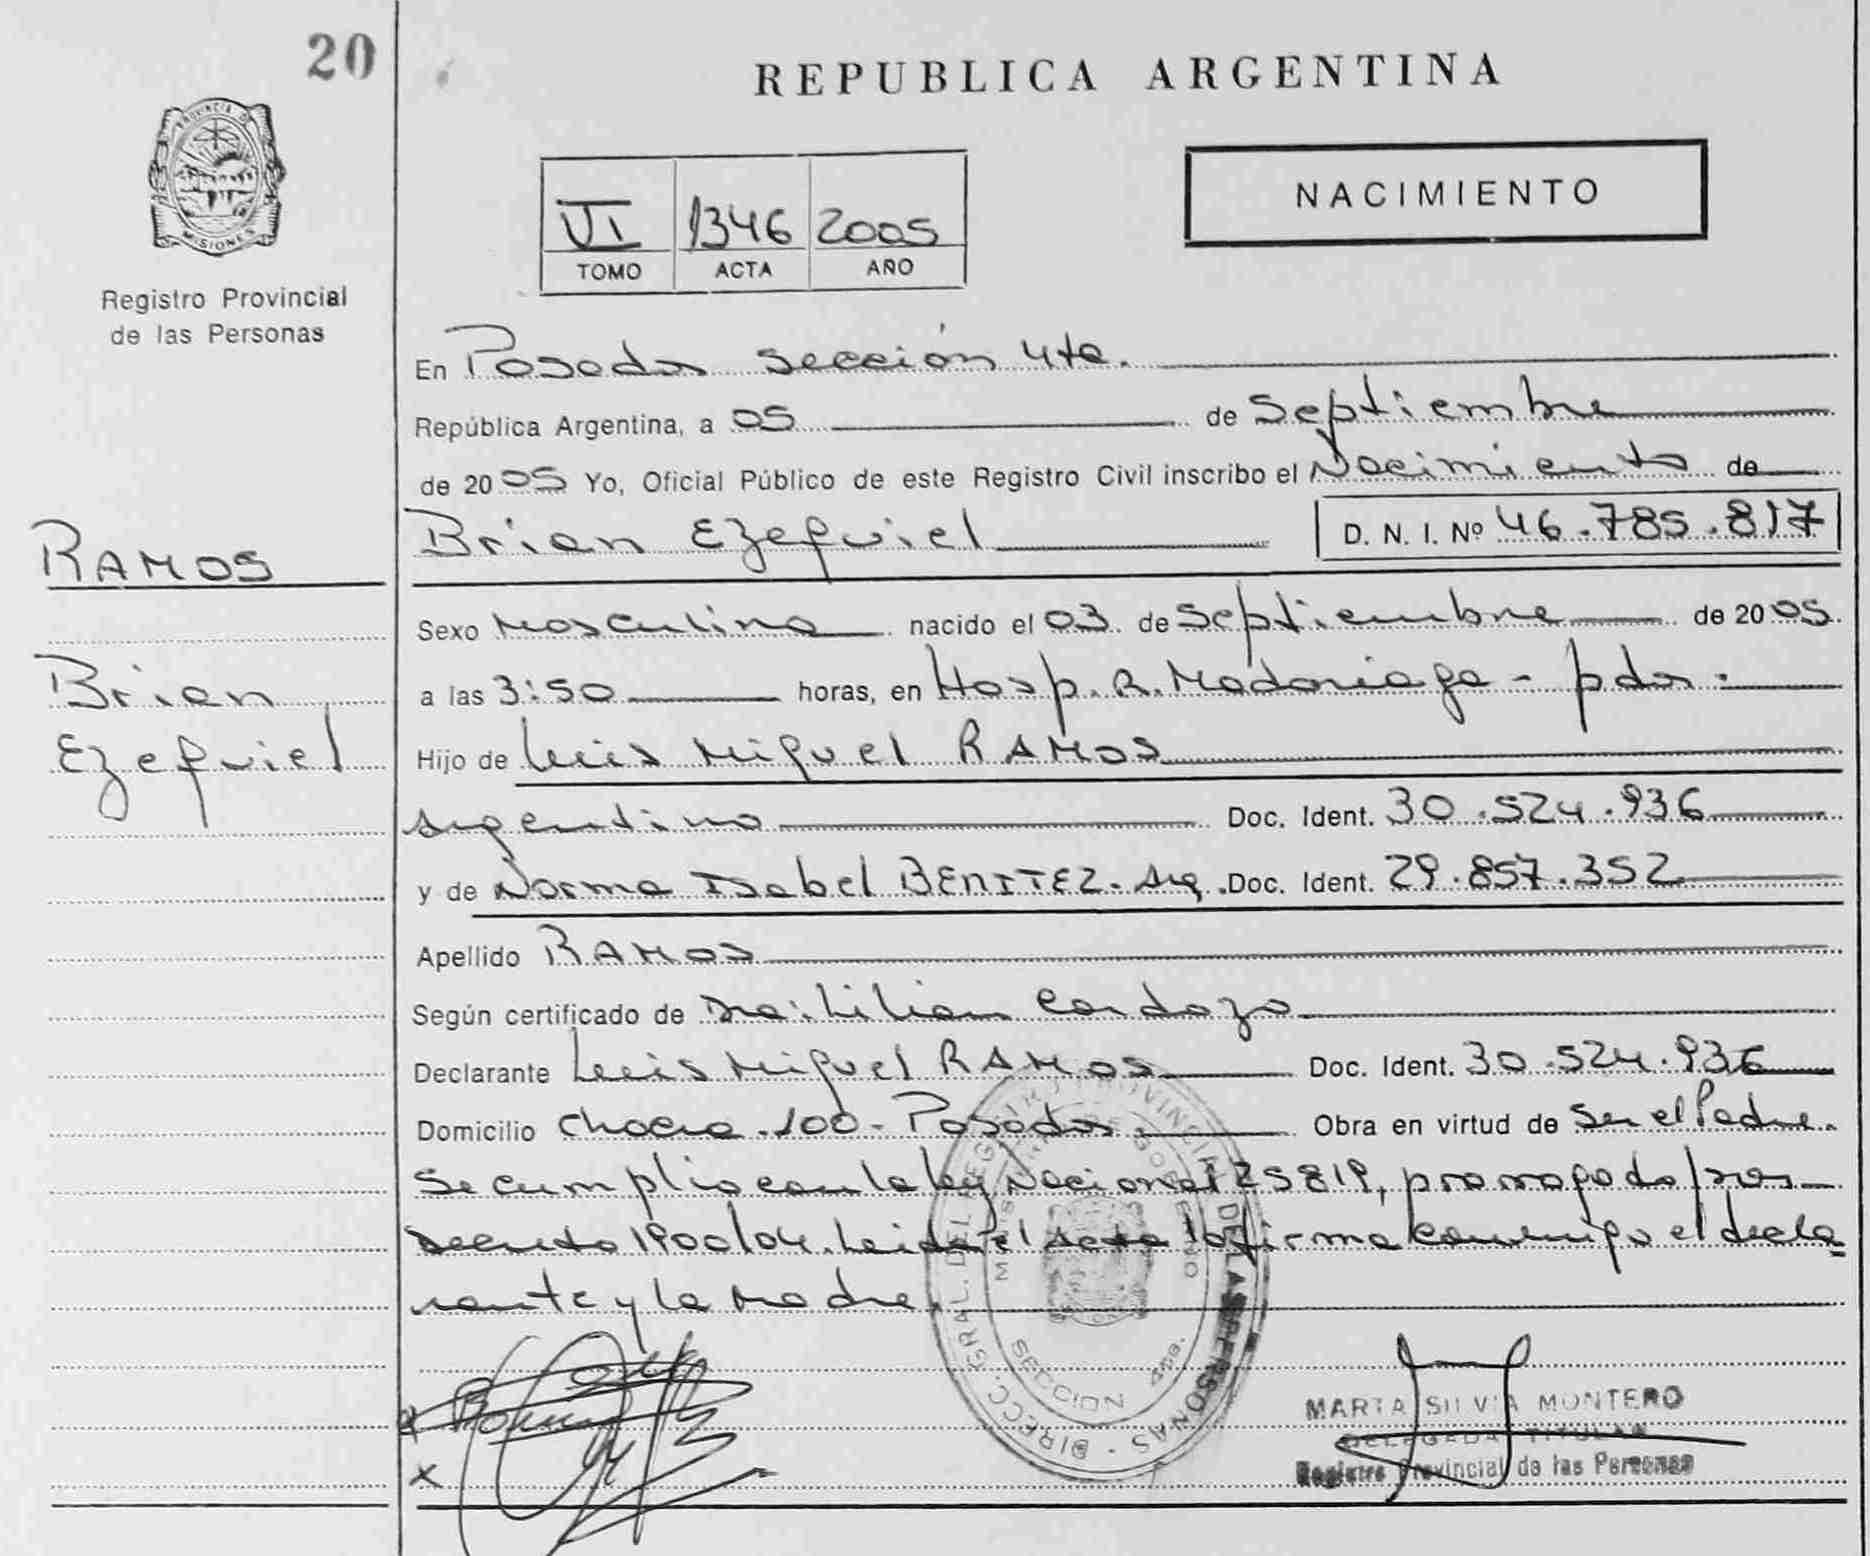 20
REPUBLICA ARGENTINA
PROVINCIA DE
MISIONES
NACIMIENTO
VI 1346 2005
TOMO ACTA AÑO
Registro Provincial
de las Personas
En Posadas Sección 4ta.
República Argentina, a 05 de Septiembre
de 2005 Yo, Oficial Público de este Registro Civil inscribo el Nacimiento de
RAMOS
Brian Ezequiel D. N. I. Nº 46.785.817
Sexo Masculino nacido el 03 de Septiembre de 2005
Brian
a las 3:50 horas, en Hosp. R. Madariaga - pdas.
Ezequiel
Hijo de Luis Miguel RAMOS
Argentino Doc. Ident. 30.524.936
y de Norma Isabel BENITEZ - Arg. Doc. Ident. 29.857.352
Apellido RAMOS
Según certificado de Dra: Lilian Cardozo
Declarante Luis Miguel RAMOS Doc. Ident. 30.524.936
Domicilio Chacra 100 - Posadas. Obra en virtud de ser el Padre.
Se cumplio con la ley Nacional 25819, prorrogado por
Decreto 1900/04. Leida el acta la firma conmigo el decla
rante y la madre.
DIRECC. GRAL. DEL REGISTRO PROVINCIAL DE LAS PERSONAS
SECCION 4ta.
MARTA SILVIA MONTERO
DELEGADA TITULAR
Registro Provincial de las Personas
x